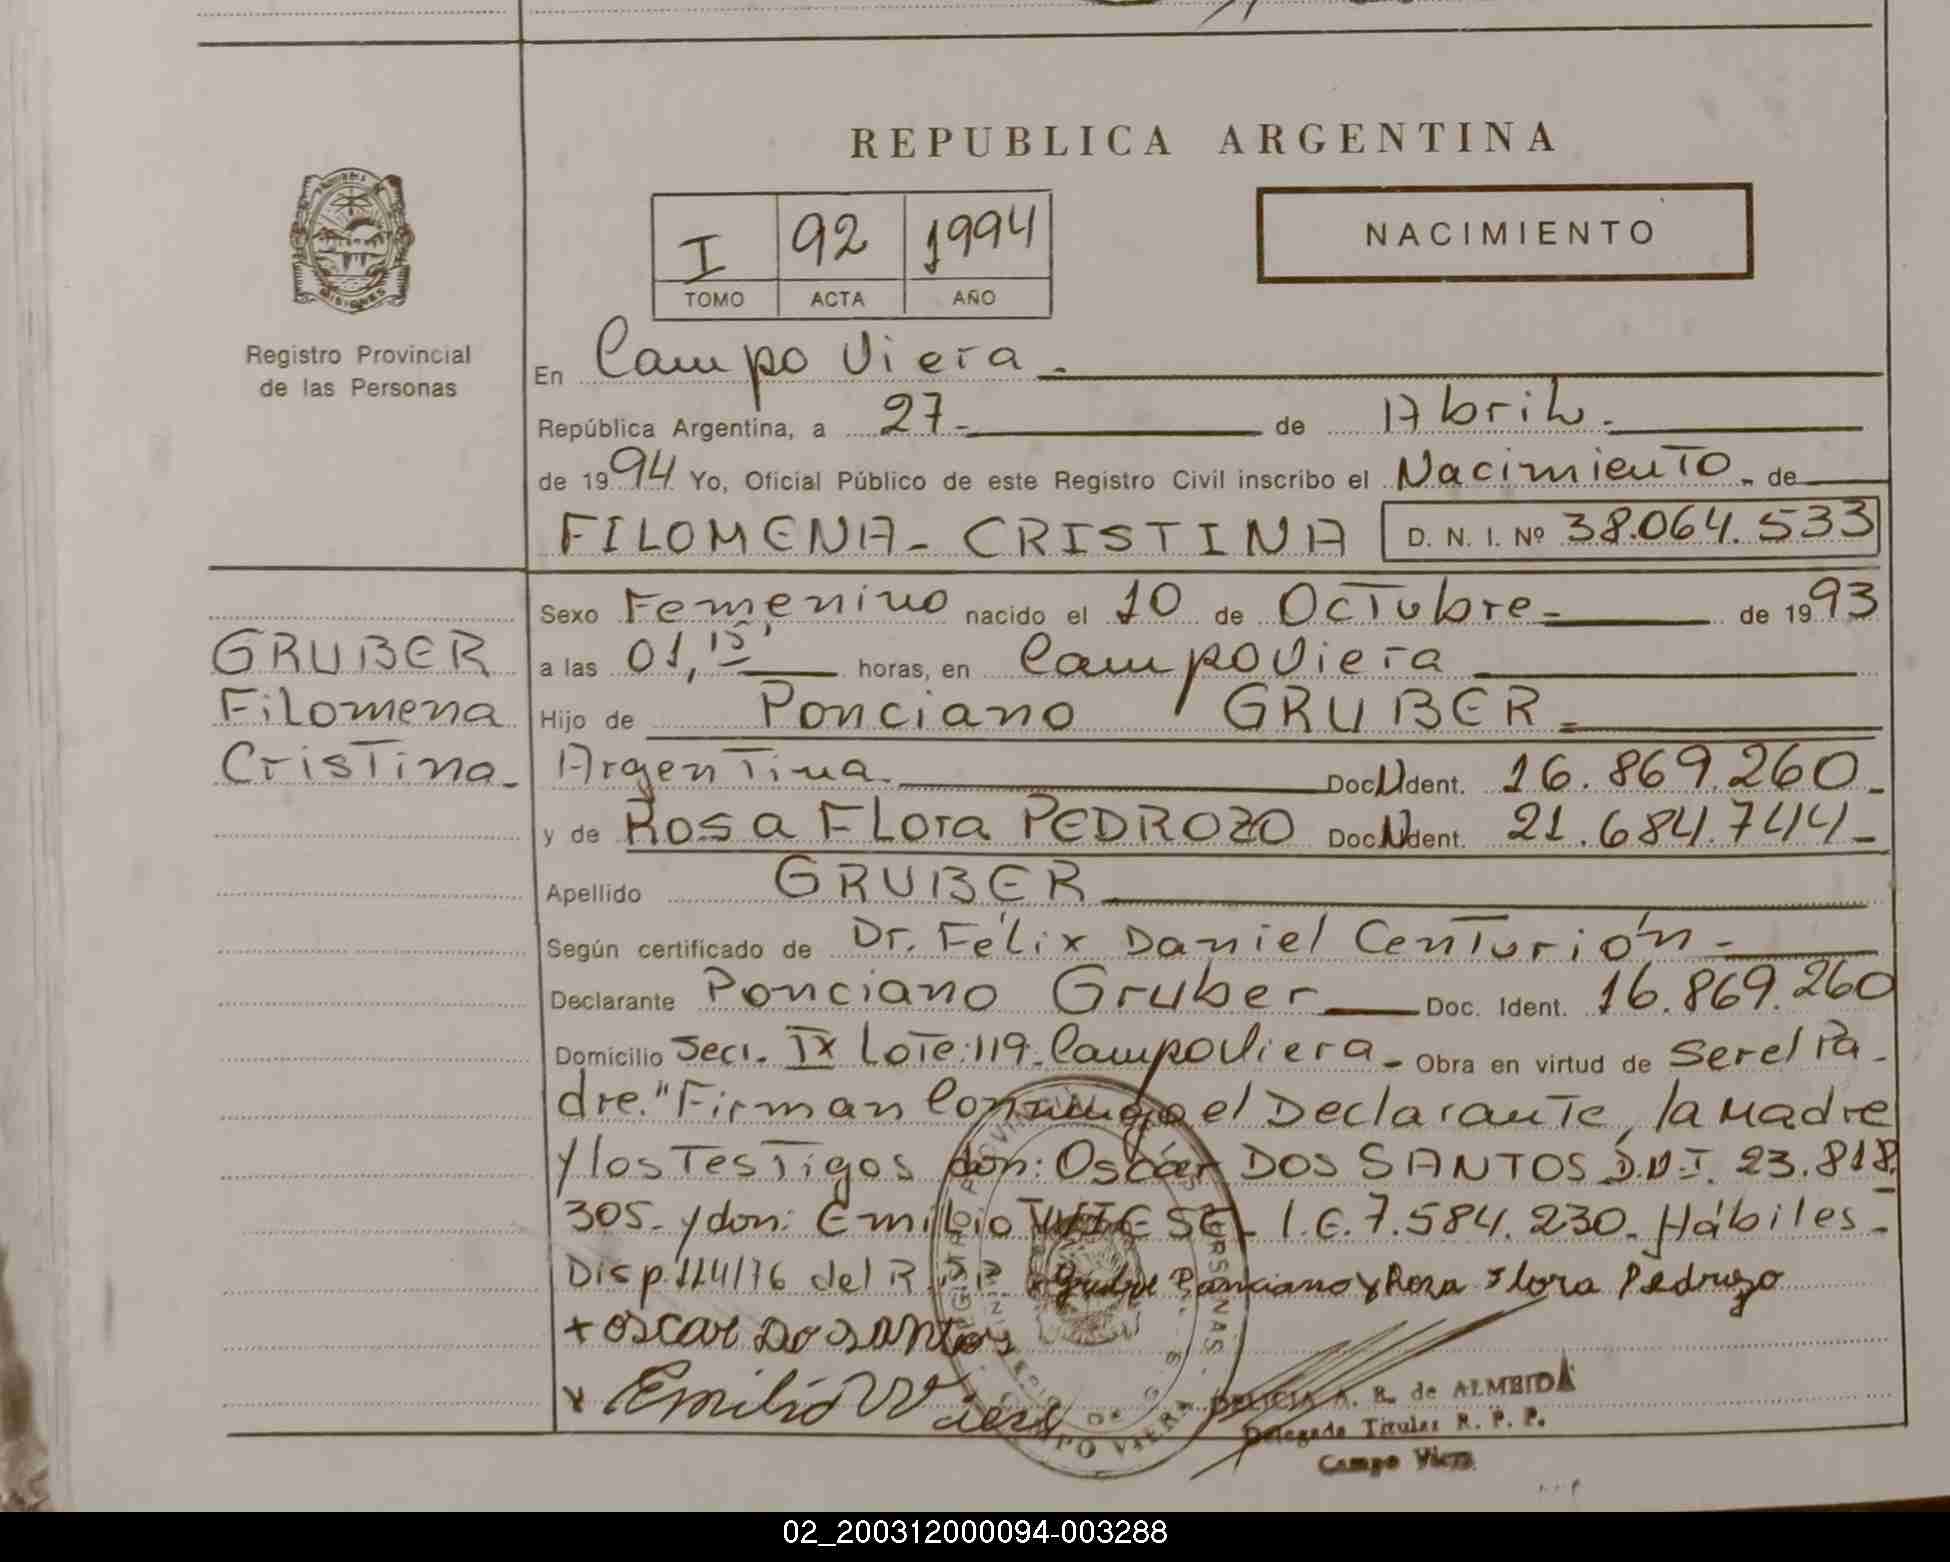 REPUBLICA ARGENTINA
I 92 1994
TOMO ACTA AÑO
NACIMIENTO
MISIONES
Registro Provincial
de las Personas
En Campo Viera.
República Argentina, a 27- de Abril.
de 1994 Yo, Oficial Público de este Registro Civil inscribo el Nacimiento- de
FILOMENA- CRISTINA D. N. I. Nº 38.064.533
GRUBER
Filomena
Cristina-
Sexo Femenino nacido el 10 de Octubre- de 1993
a las 01,15' horas, en Campo Viera
Hijo de Ponciano GRUBER-
Argentina. Doc. Ident. 16.869.260-
y de Rosa Flora PEDROZO Doc. Ident. 21.684.744-
Apellido GRUBER
Según certificado de Dr. Félix Daniel Centurión-
Declarante Ponciano Gruber Doc. Ident. 16.869.260
Domicilio Secc. IX Lote:119-Campo Viera- Obra en virtud de Ser el Pa-
dre." Firman Conmigo el Declarante, la Madre
y los Testigos don: Oscar DOS SANTOS D.N.I. 23.818.
305- y don: Emilio WIESE- L.E. 7.584.230- Hábiles-
Disp. 114/76 del R.P.P. Ponciano y Rosa Flora Pedrozo
+ oscar Do santos
x Emilio Wiese
DELICIA A. R. de ALMEIDA
Delegada Titular R. P. P.
Campo Viera
02_200312000094-003288